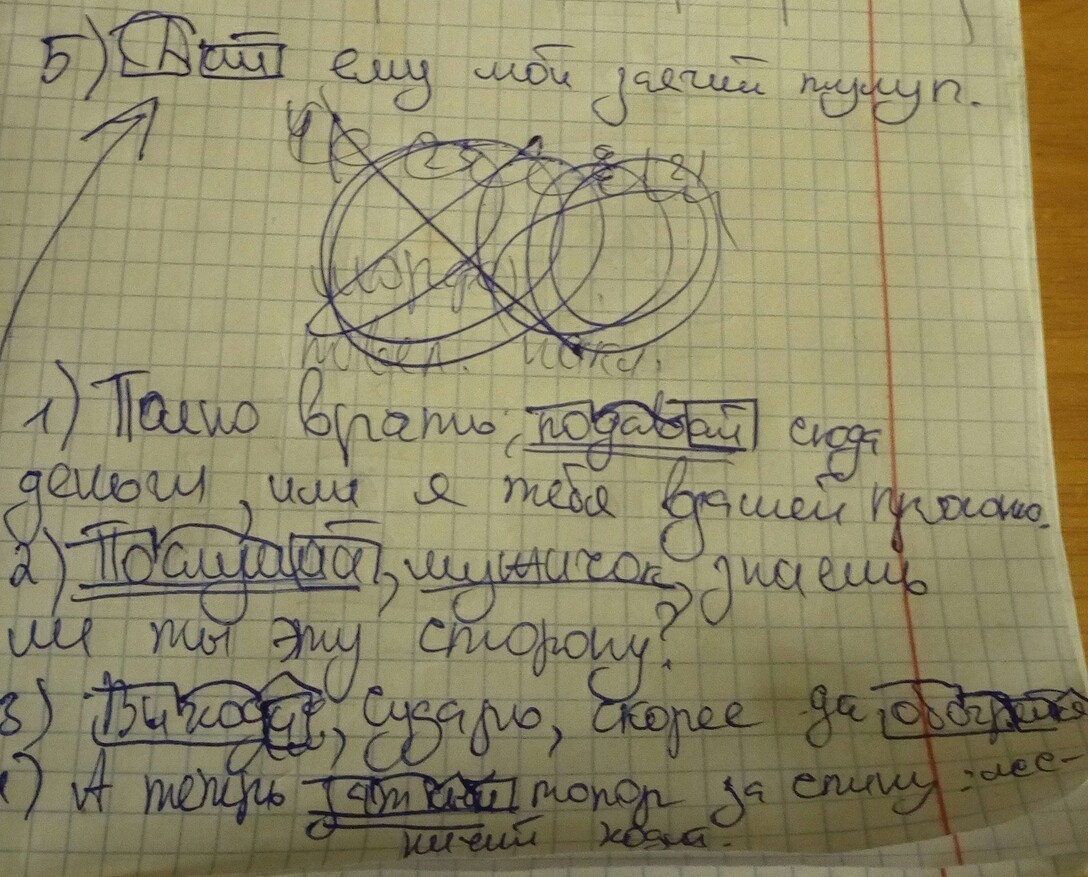 5) Дай ему мой заячий тулуп.
1) Полно врать, подавай сюда
деньги, или я тебя взашей прогоню.
2) Послушай, мужичок, знаешь
ли ты эту сторону?
3) Выходи, сударь, скорее да обогрейся
А теперь заткни топор за спину: лес-
ничий ходит.